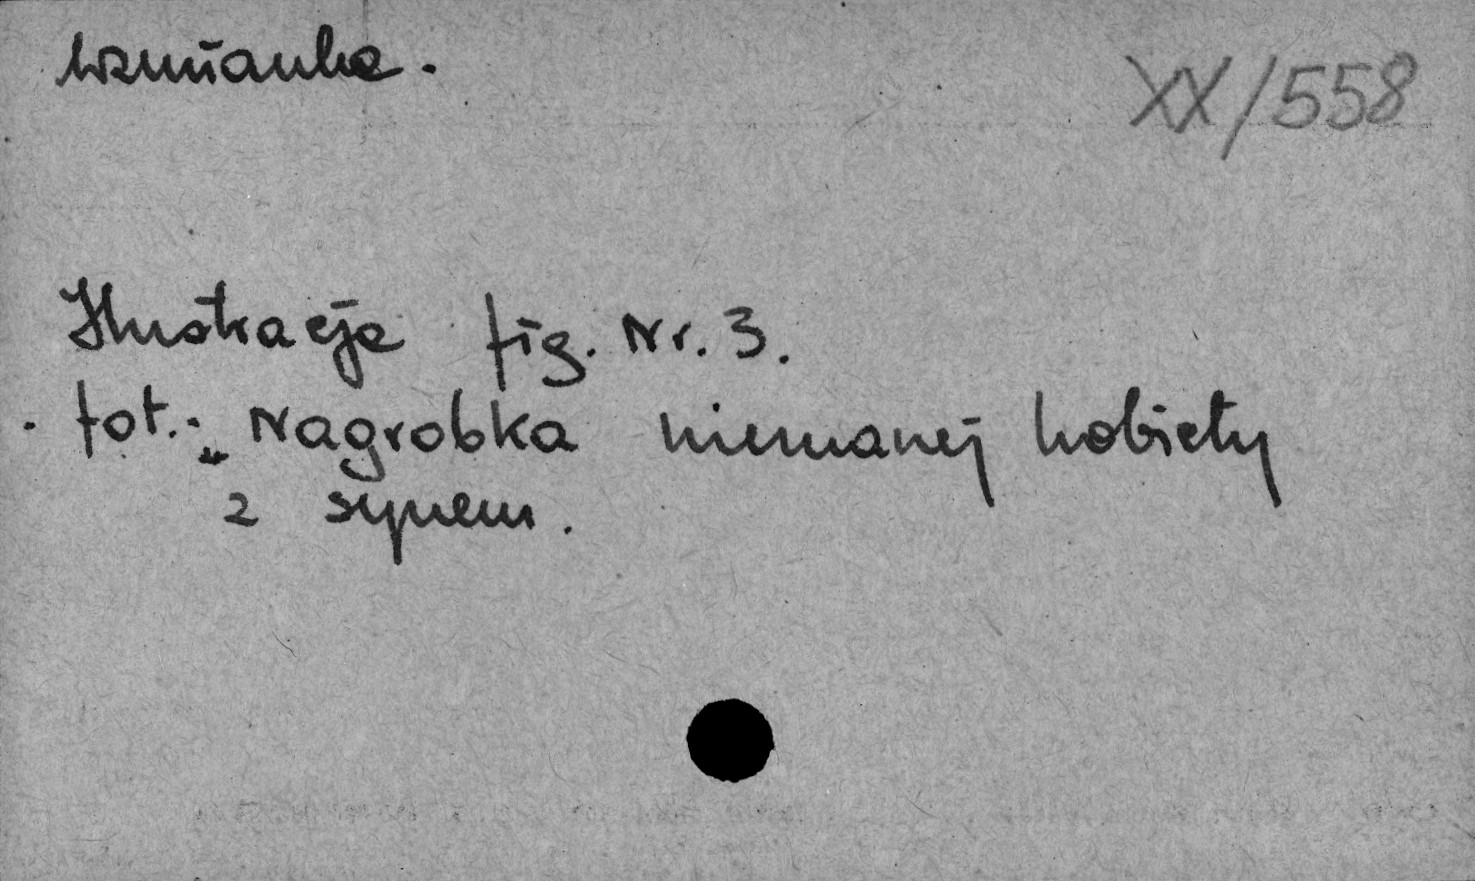 wzmianka.
XX/558
Ilustracja fig. Nr. 3.
fot. „Nagrobka nieznanej kobiety
z synem.